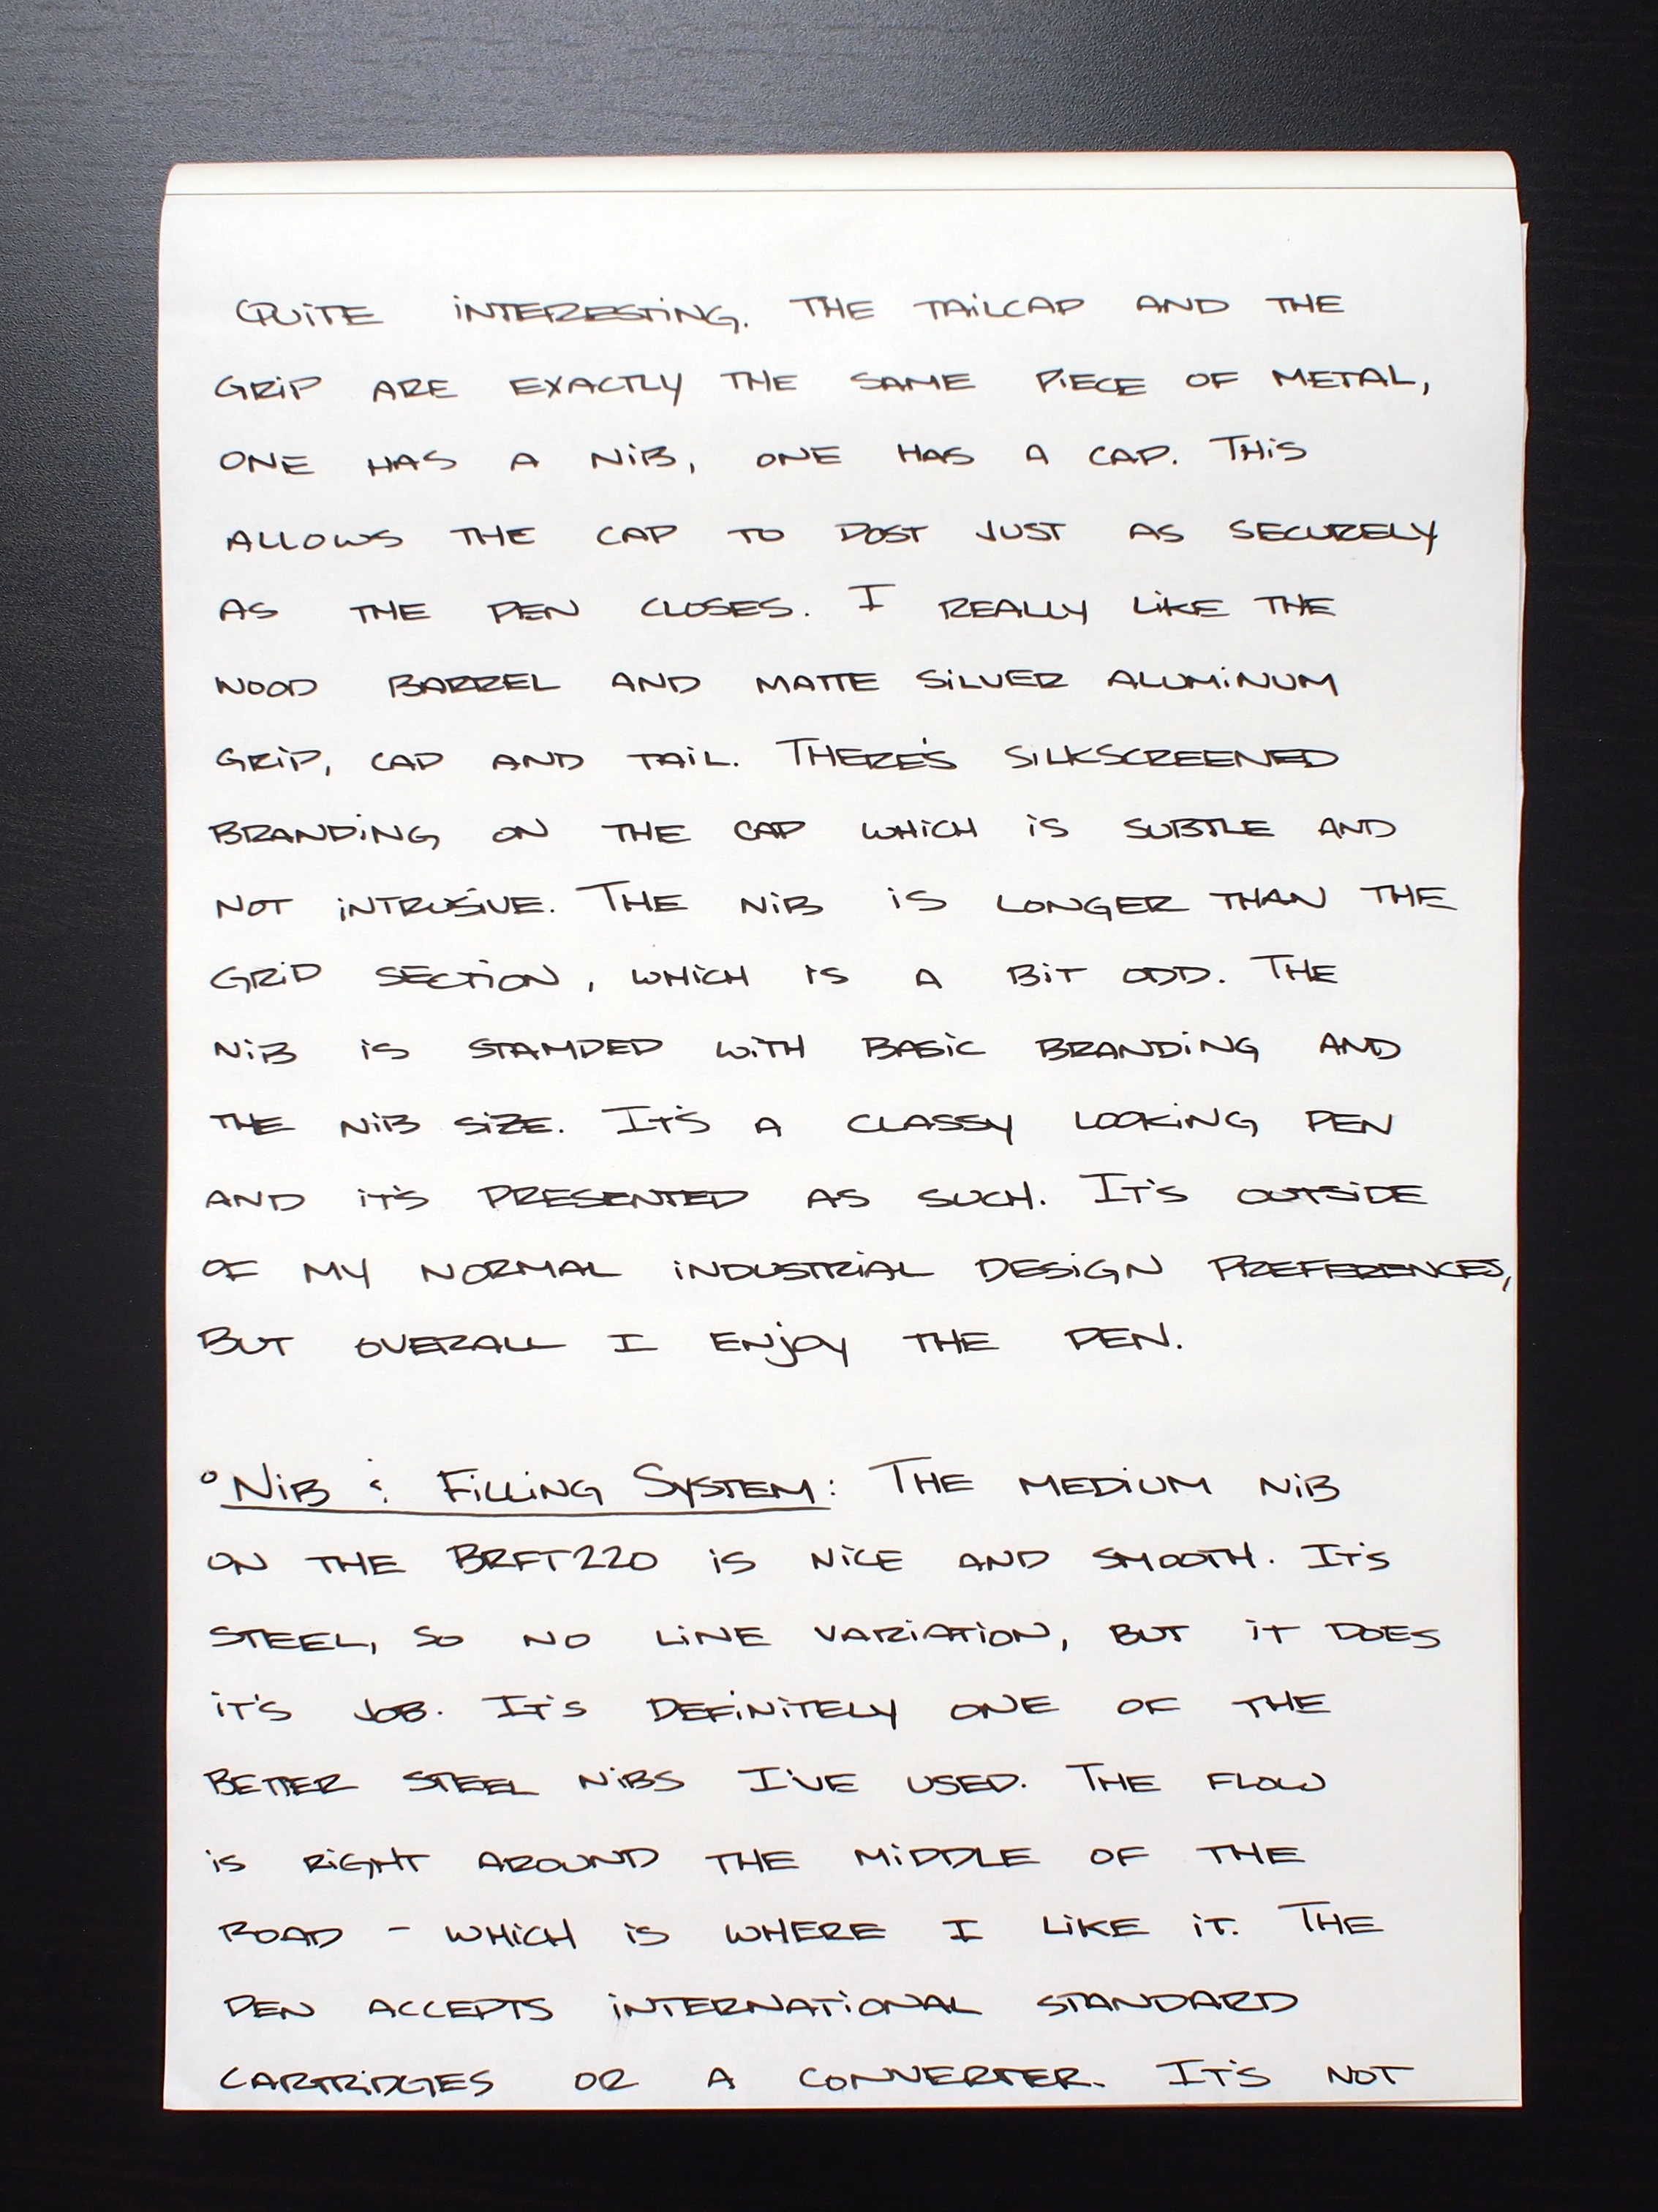 QUITE INTERESTING. THE TAILCAP AND THE
GRIP ARE EXACTLY THE SAME PIECE OF METAL,
ONE HAS A NIB, ONE HAS A CAP. THIS
ALLOWS THE CAP TO POST JUST AS SECURELY
AS THE PEN CLOSES. I REALLY LIKE THE
WOOD BARREL AND MATTE SILVER ALUMINUM
GRIP, CAP AND TAIL. THERE'S SILKSCREENED
BRANDING ON THE CAP WHICH IS SUBTLE AND
NOT INTRUSIVE. THE NIB IS LONGER THAN THE
GRIP SECTION, WHICH IS A BIT ODD. THE
NIB IS STAMPED WITH BASIC BRANDING AND
THE NIB SIZE. IT'S A CLASSY LOOKING PEN
AND IT'S PRESENTED AS SUCH. IT'S OUTSIDE
OF MY NORMAL INDUSTRIAL DESIGN PREFERENCES,
BUT OVERALL I ENJOY THE PEN.
° NIB & FILLING SYSTEM: THE MEDIUM NIB
ON THE BRFT220 IS NICE AND SMOOTH. IT'S
STEEL, SO NO LINE VARIATION, BUT IT DOES
IT'S JOB. IT'S DEFINITELY ONE OF THE
BETTER STEEL NIBS I'VE USED. THE FLOW
IS RIGHT AROUND THE MIDDLE OF THE
ROAD - WHICH IS WHERE I LIKE IT. THE
PEN ACCEPTS INTERNATIONAL STANDARD
CARTRIDGES OR A CONVERTER. IT'S NOT